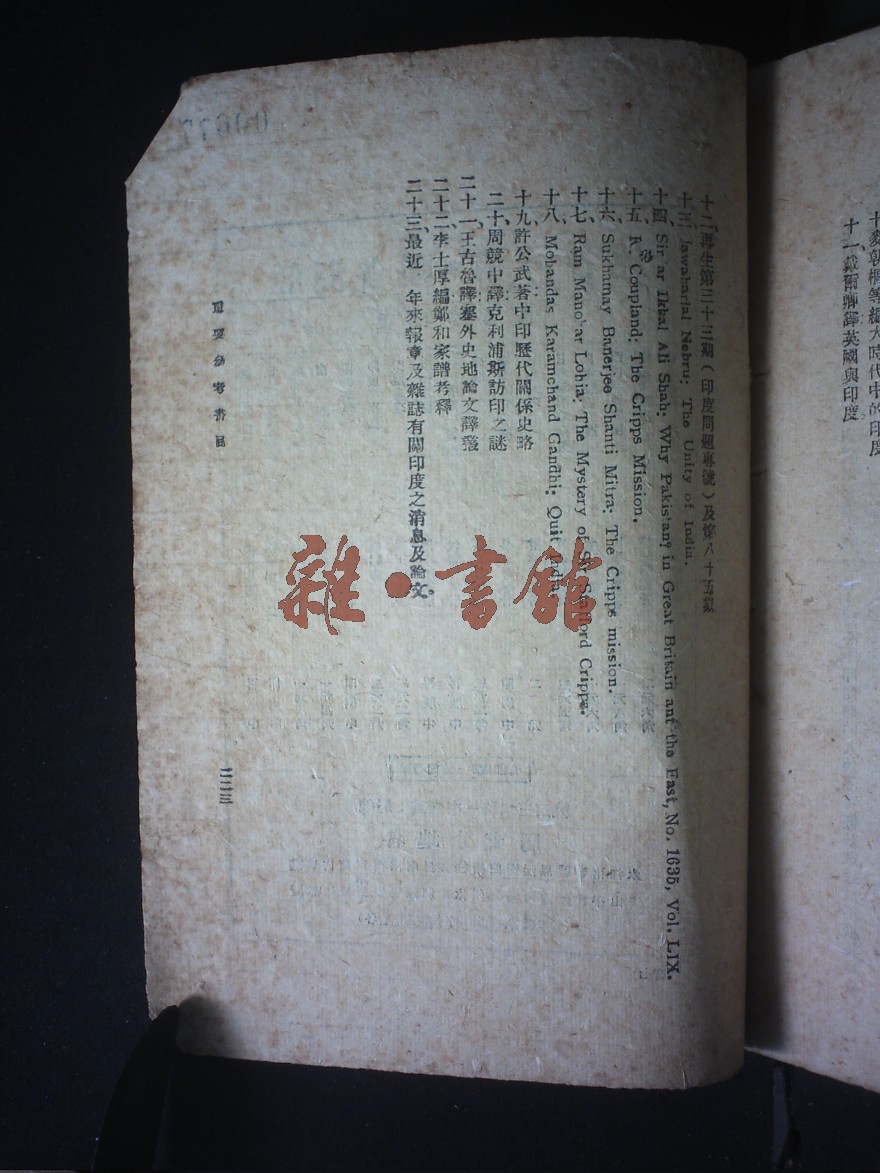 十、
郭桐等編大時代中的印度
十一、戴爾卿譯英國與印度
十二、再生第三十三期(印度問題專號)及第八十五期
十三、Jawaharlal Nehru: The Unity of India.
十四、Sir ar Ikbal Ali Shah: Why Pakistan? in Great Britain ant the East, No. 1635, Vol. LIX.
十五、R. Coupland: The Cripps Mission.
十六、Sukhamay Banerjee Shanti Mitra: The Cripps mission.
十七、Ram Mano'ar Lohia: The Mystery of Sir Stafford Cripps.
十八、Mohandas Karamchand Gandhi: Quit India.
十九、許公武著中印歷代關係史略
二十、周競中譯克利浦斯訪印之謎
二十一、王古魯譯塞外史地論文譯叢
二十二、李士厚編鄭和家譜考釋
二十三、最近 年來報章及雜誌有關印度之消息及論文。
重要參考書目
二二三
雜·書館